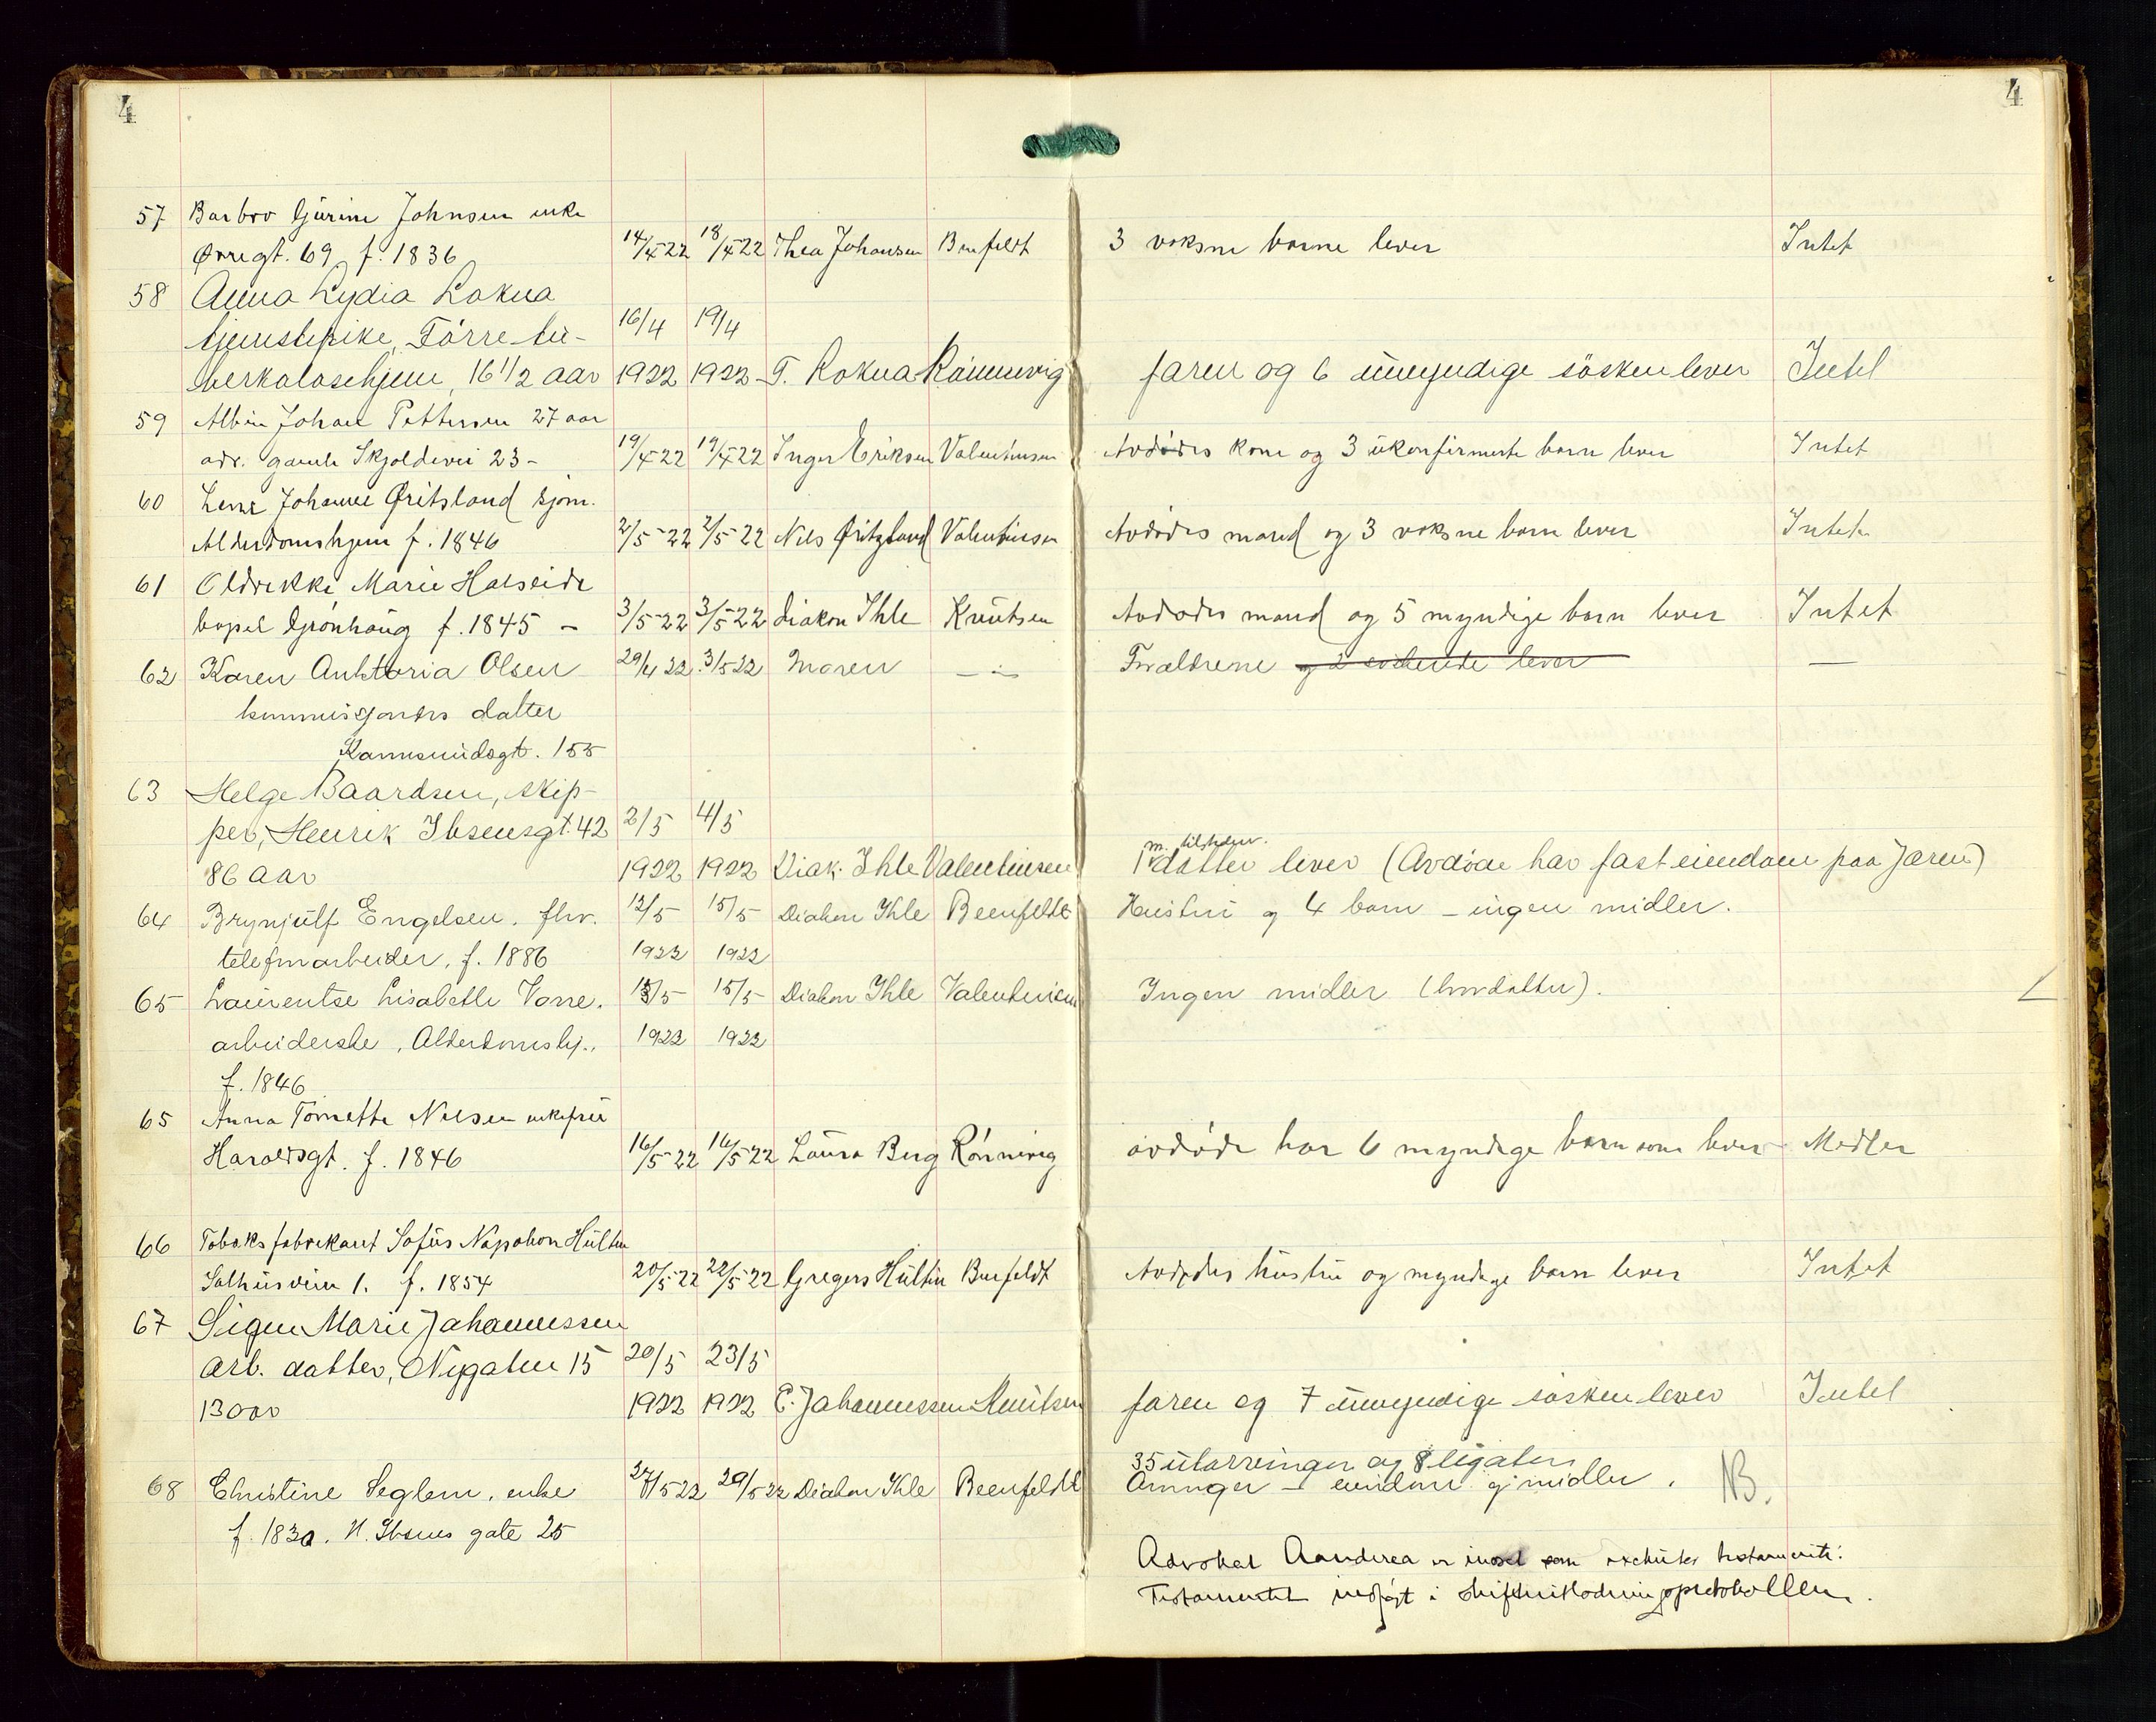 4 4
57 Barbro Gurine Johnsen enke
Örregt. 69, f. 1836 14/4-22 18/4-22 Thea Johansen Beenfeldt 3 voksne barne lever Intet
58 Anna Lydia Lokna
tjenestepike, Förre tu-
berkulosehjem, 16 1/2 aar 16/4 1922 19/4 1922 T. Lokna Rönnevig faren og 6 umyndige sösken lever Intet
59 Albin Johan Pettersen 27 aar
adr. gamle Skjoldevei 23- 19/4-22 19/4-22 Inger Eriksen Valentinsen Avdödes kone og 3 ukonfirmerte barn lever Intet
60 Lene Johanne Öritsland sjöm.
Alderdomshjem f. 1846 2/5-22 2/5-22 Nils Öritzland Valentinsen Avdödes mand og 3 voksne barn lever Intet
61 Oldrikke Marie Halseide
bopel Grönhaug f. 1845 - 3/5-22 3/5-22 diakon Ihle Knutsen Avdödes mand og 5 myndige barn lever Intet
62 Karen Antoria Olsen 29/4 22 3/5 22 Maren — " — Foreldrene og 2 söskende lever —
kommisjonærs datter
Karmsundsgt. 155
63 Helge Baardsen, skip-
per, Henrik Ibsensgt. 42 2/5 4/5
86 aar 1922 1922 Diak. Ihle Valentinsen 1 datter lever (Avdöde har fast eiendom paa Jæren)
64 Brynjulf Engelsen. fhv. 12/5 15/5 Diakon Ihle Beenfeldt Hustru og 4 barn - ingen midler.
telefonarbeider. f. 1886 1922 1922
65 Laurentse Lisabeth Vorre. 13/5 15/5 Diakon Ihle Valentinsen Ingen midler (brordatter).
arbeiderske, Alderdomshj., 1922 1922
f. 1846
65 Anna Tomette Nilsen enkefru
Haraldsgt. f. 1846 16/5-22 16/5-22 Laura Berg Rönnevig avdöde har 6 myndige barn som lever Midler
66 Tobaksfabrikant Sofus Napoleon Hultin
Salhusveien 1. f. 1854 20/5-22 22/5-22 Gregers Hultin Beenfeldt Avdödes hustru og myndige barn lever Intet
67 Signe Marie Johannessen
arb. datter, Nygaten 15 20/5 23/5
13 aar 1922 1922 E. Johannessen Knutsen faren og 7 umyndige sösken lever Intet
35 utarvinger og 8 legater
68 Christine Seglem, enke 27/5 22 29/5 22 Diakon Ihle Beenfeldt Arvinger - eiendom og midler. NB.
f. 1830. H. Ibsens gate 25
Advokat Aanderaa er som testamente.
Testamentet indfört i skifteutlodningsprotokollen.